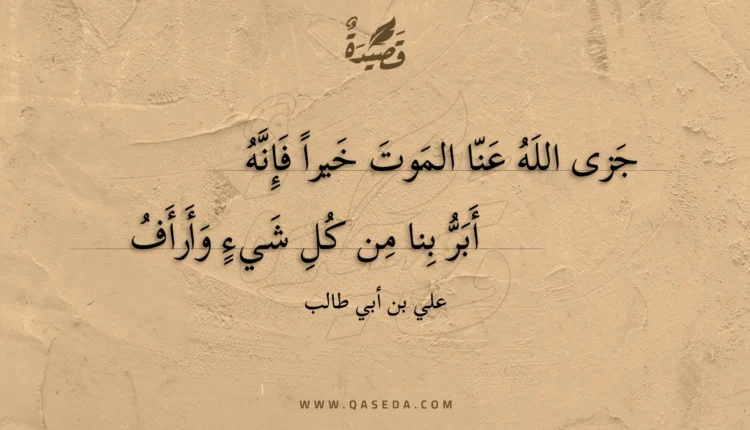 قَصِيدَةٌ
جَزى اللَهُ عَنّا المَوتَ خَيراً فَإِنَّهُ
أَبَرُّ بِنا مِن كُلِ شَيءٍ وَأَرأَفُ
علي بن أبي طالب
WWW.QASEDA.COM